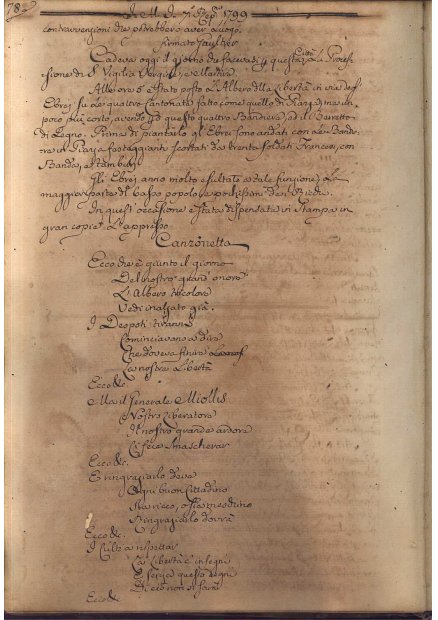 782
1799
contravvenzioni che potrebbero aver luogo.
firmato Gaultier
Cadeva oggi il giorno che facevasi p questa Città la Proces
sione di S. Vigilia Vergine, e vellutara.
Alle ore 5 è stato posto L'Albero della Libertà in via degl'
Ebrej su le quattro Cantonate fatto come quello di Piazza, ma un
poco più corto, avendo p questo quattro Bandiere, ed il Barretto
di Legno. Prima di piantarlo gl'Ebrei sono andati con le Bandie
re in Piazza festeggianti scortati da trenta soldati Francesi, con
Banda, e tamburi
Gli Ebrej anno molto esultato a tale funzione, e la
maggior parte di basso popolo
In quest'occasione è stata dispensata in stampa in
gran copie L'appresso
Canzonetta
Ecco che è giunto il giorno
Del nostro grand'onore
L'Albero tricolore
Vedi inalzato già.
I Despoti tiranni
Cominciavano a dire
Che doveva finire
La nostra Libertà
Ecco &c.
Ma il Generale Miollis
Nostro Liberatore
Il nostro grande ardore
Ci fece smascherar
Ecco &c.
E ringraziarlo deve
Ogni buon Cittadino
Sia ricco, o sia meschino
Ringraziarlo dovrà
Ecco &c.
I Culti a rispettar
La Libertà c'insegni
E
Di
Ecco &c